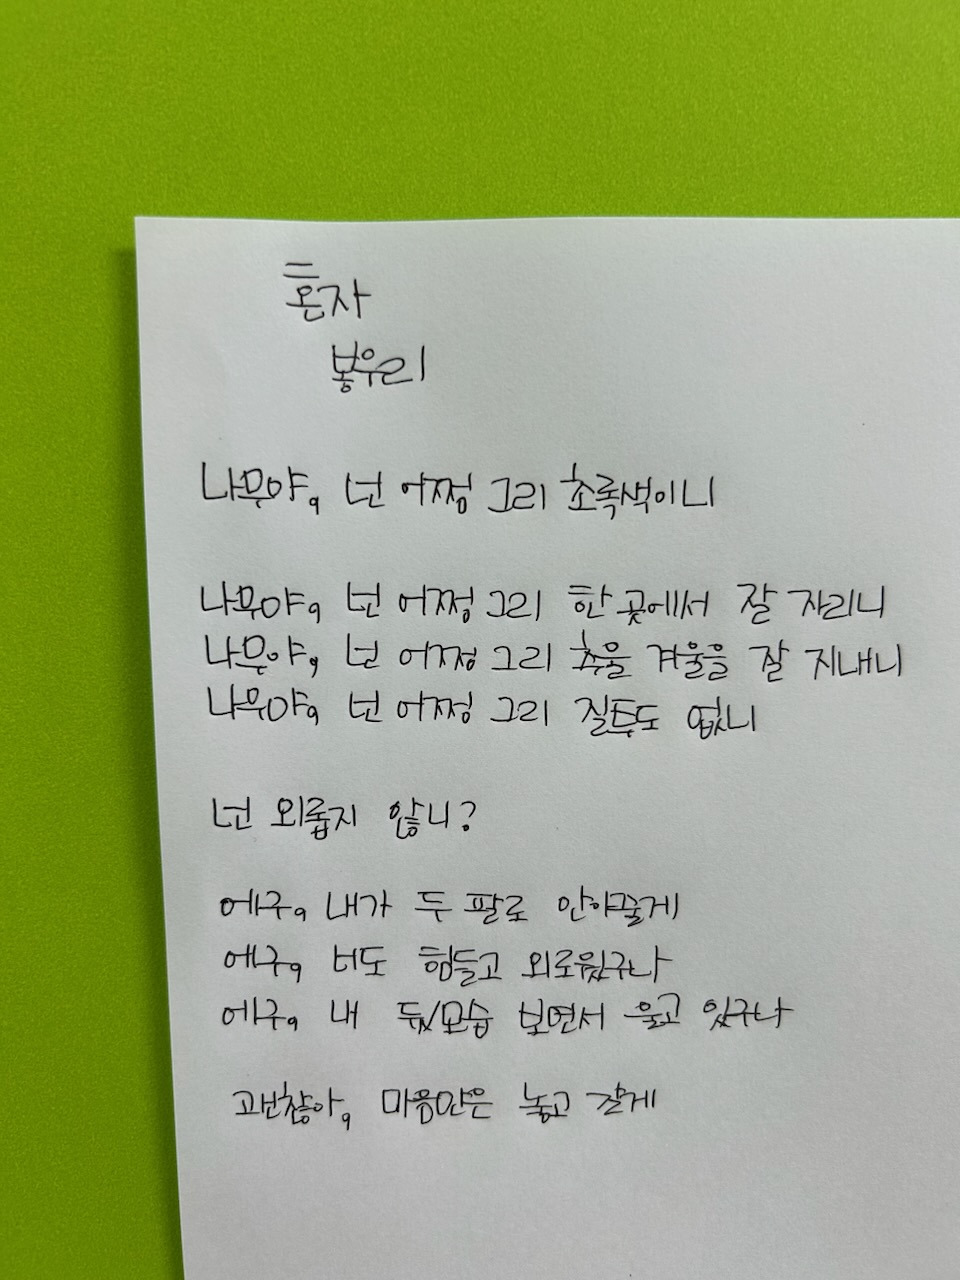 혼자
봉우리
나무야, 넌 어쩜 그리 초록색이니
나무야, 넌 어쩜 그리 한 곳에서 잘 자라니
나무야, 넌 어쩜 그리 추울 겨울을 잘 지내니
나무야, 넌 어쩜 그리 질투도 없니
넌 외롭지 않니?
에구, 내가 두 팔로 안아줄게
에구, 너도 힘들고 외로웠구나
에구, 내 뒷모습 보면서 울고 있구나
괜찮아, 마음만은 놓고 갈게